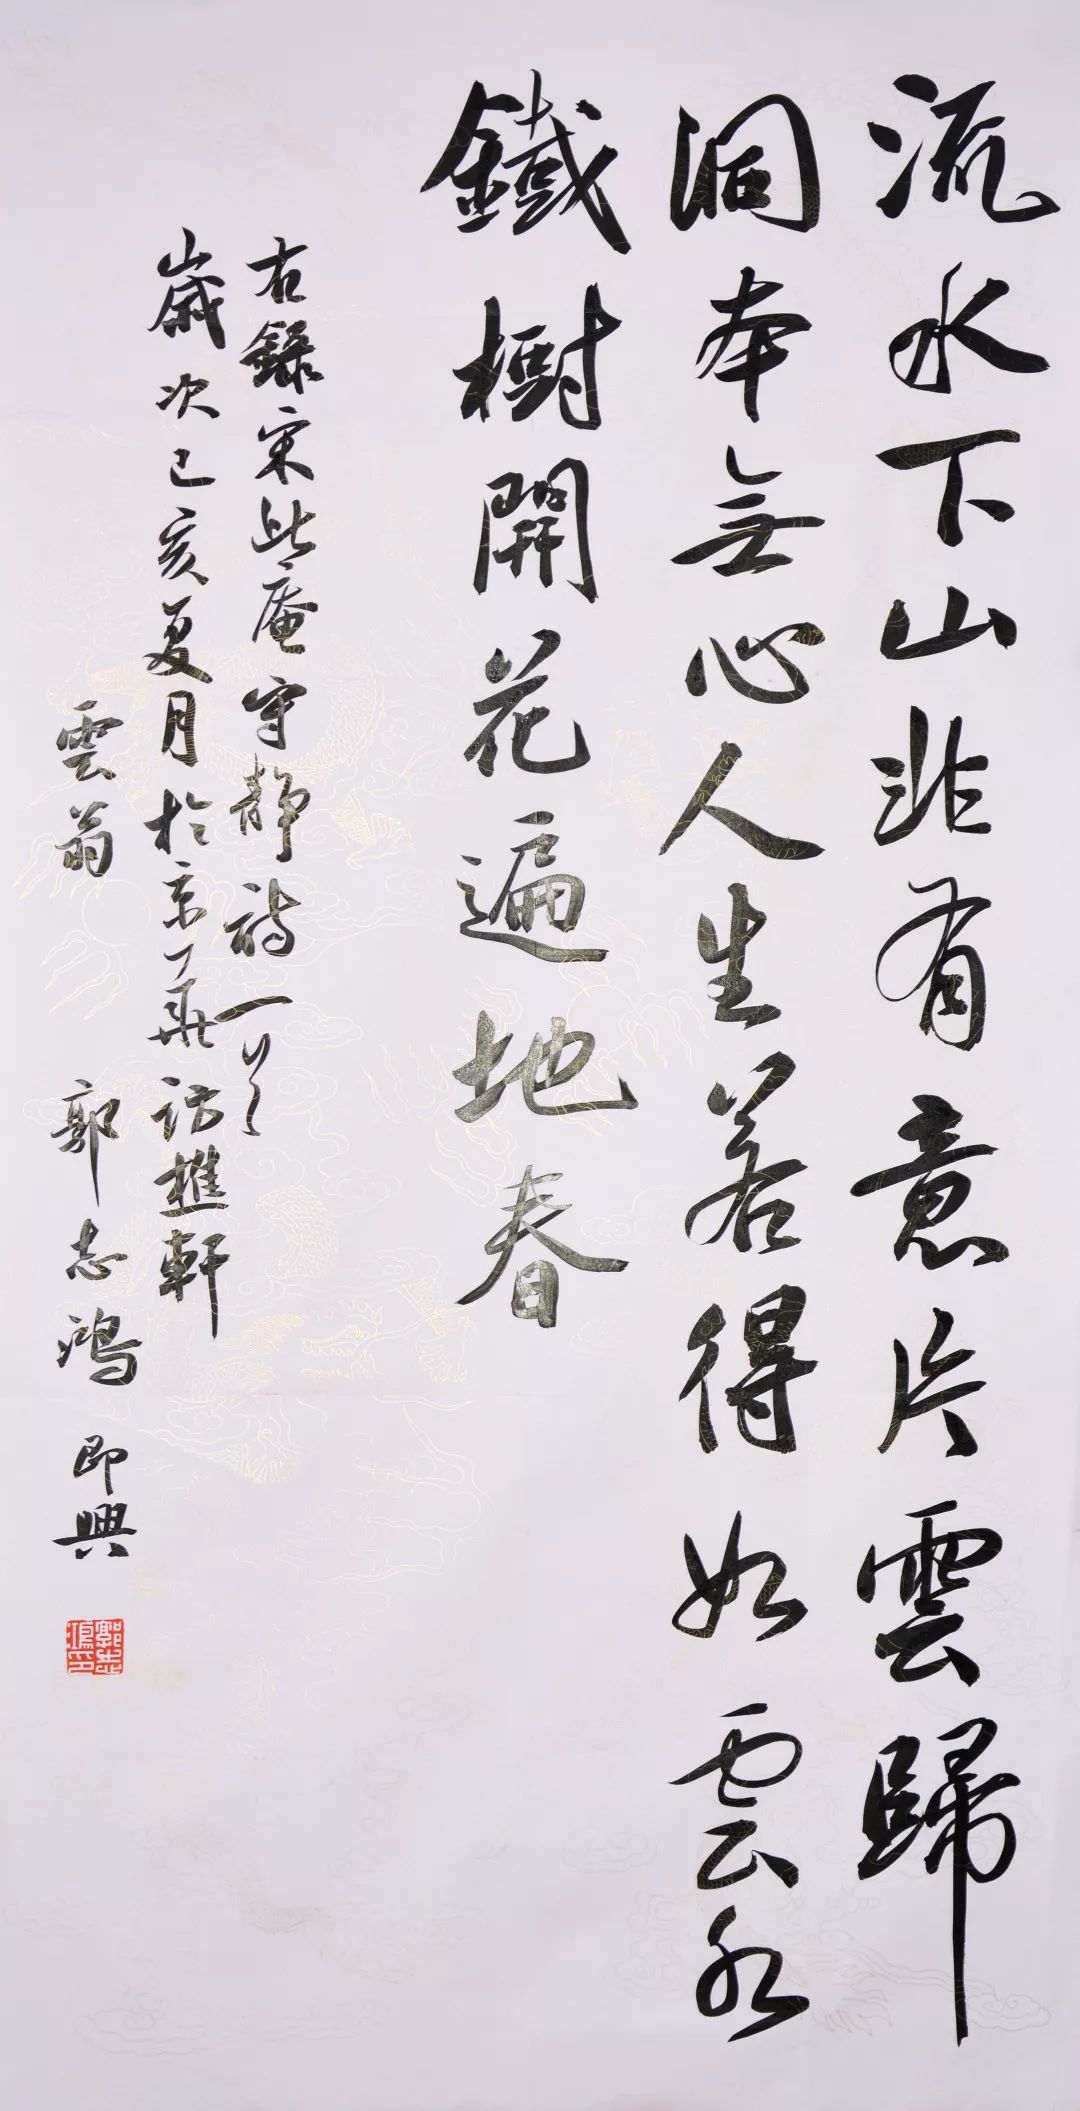 流水下山非有意片雲歸
洞本無心人生若得如雲水
鐵樹開花遍地春
右錄宋此庵守静詩一首
歲次己亥夏月於京華訪樵軒
雲翁 郭志鴻 即興
郭志鴻印